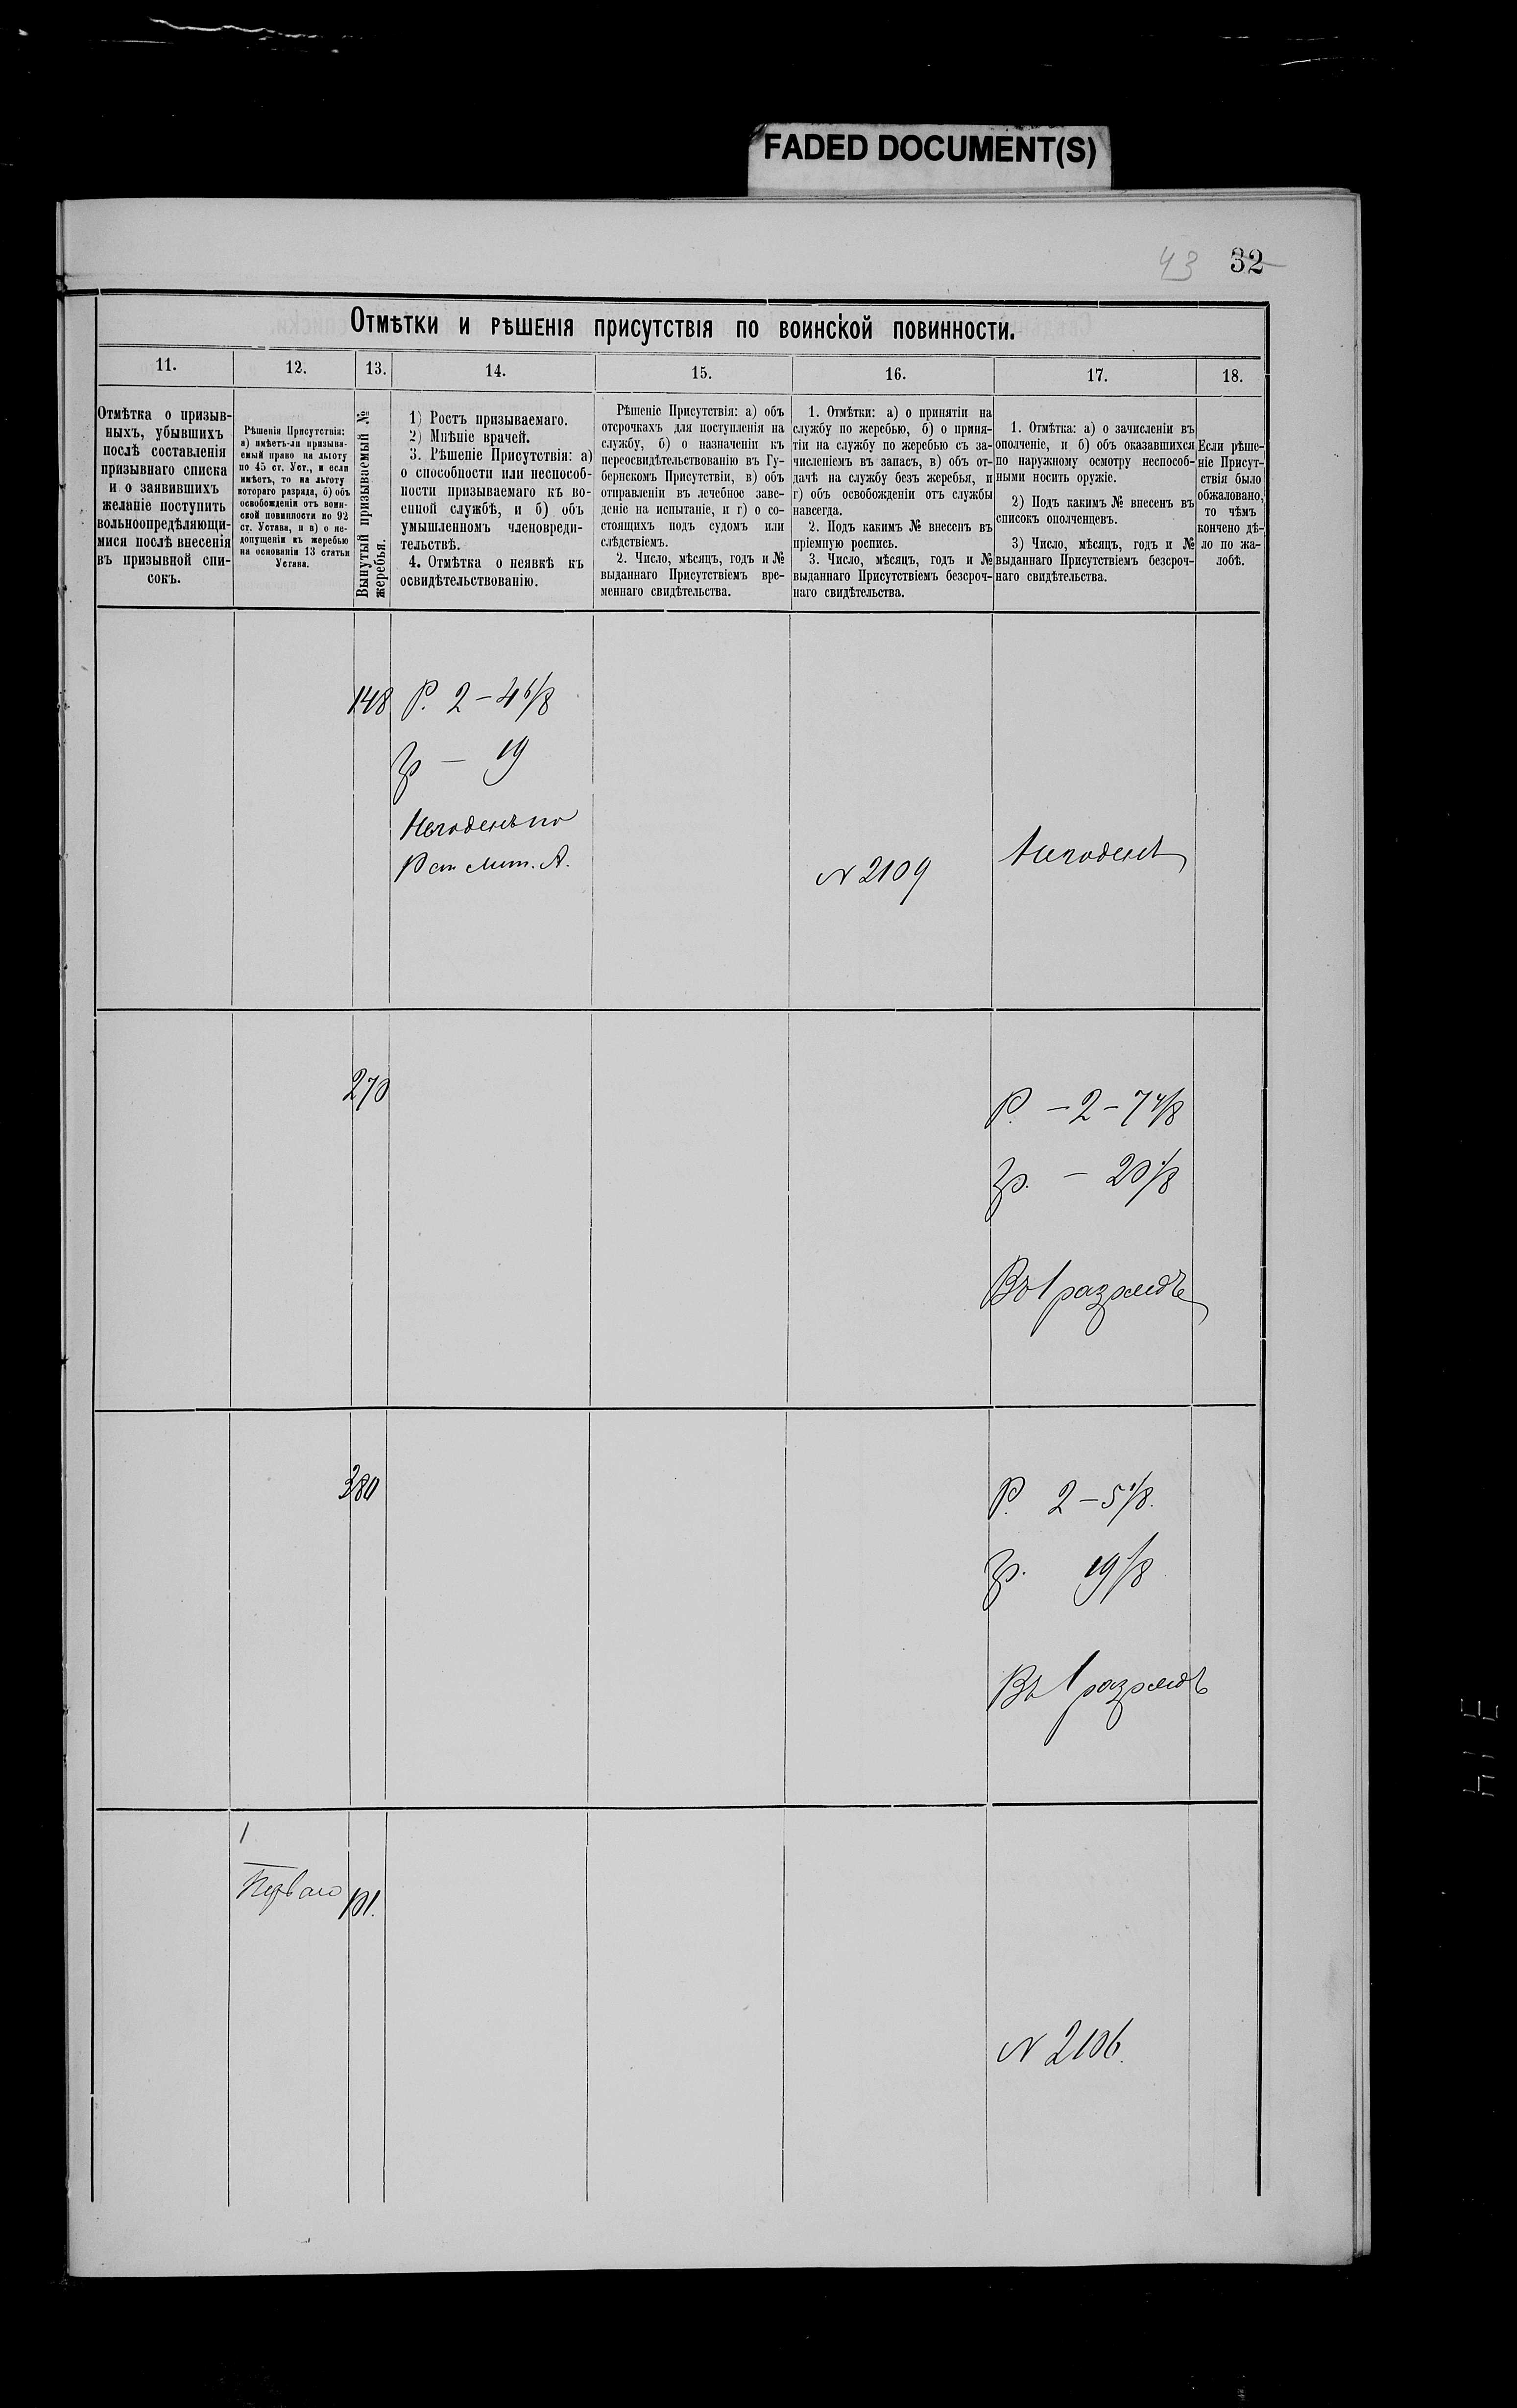 FADED DOCUMENT(S)
43 32
Отмѣтки и рѣшенія присутствія по воинской повинности.
11. 12. 13. 14. 15. 16. 17. 18.
Отмѣтка о призыв-
ныхъ, убывшихъ
послѣ составленія
призывнаго списка
и о заявившихъ
желаніе поступить
вольноопредѣляющи-
мися послѣ внесенія
въ призывной спи-
сокъ.
Рѣшенія Присутствія:
а) имѣетъ-ли призыва-
емый право на льготу
по 45 ст. Уст., и если
имѣетъ, то на льготу
котораго разряда, б) объ
освобожденіи отъ воин-
ской повинности по 92
ст. Устава, и в) о не-
допущеніи къ жеребью
на основаніи 13 статьи
Устава.
Вынутый призываемый №
жеребья.
1) Ростъ призываемаго.
2) Мнѣніе врачей.
3. Рѣшеніе Присутствія: а)
о способности или неспособ-
ности призываемаго къ во-
енной службѣ, и б) объ
умышленномъ членовреди-
тельствѣ.
4. Отмѣтка о неявкѣ къ
освидѣтельствованію.
Рѣшеніе Присутствія: а) объ
отсрочкахъ для поступленія на
службу, б) о назначеніи къ
переосвидѣтельствованію въ Гу-
бернскомъ Присутствіи, в) объ
отправленіи въ лечебное заве-
деніе на испытаніе, и г) о со-
стоящихъ подъ судомъ или
слѣдствіемъ.
2. Число, мѣсяцъ, годъ и №
выданнаго Присутствіемъ вре-
меннаго свидѣтельства.
1. Отмѣтки: а) о принятіи на
службу по жеребью, б) о приня-
тіи на службу по жеребью съ за-
численіемъ въ запасъ, в) объ от-
дачѣ на службу безъ жеребья, и
г) объ освобожденіи отъ службы
навсегда.
2. Подъ какимъ № внесенъ въ
пріемную роспись.
3. Число, мѣсяцъ, годъ и №
выданнаго Присутствіемъ безсроч-
наго свидѣтельства.
1. Отмѣтка: а) о зачисленіи въ
ополченіе, и б) объ оказавшихся
по наружному осмотру неспособ-
ными носить оружіе.
2) Подъ какимъ № внесенъ въ
списокъ ополченцевъ.
3) Число, мѣсяцъ, годъ и №
выданнаго Присутствіемъ безсроч-
наго свидѣтельства.
Если рѣше-
ніе Присут-
ствія было
обжаловано,
то чѣмъ
кончено дѣ-
ло по жа-
лобѣ.
148 Р. 2 – 4 6/8
Гр – 19
Негоденъ по
Рсп Лит. А.
N 2109
Негоденъ
270
Р. – 2 – 7 4/8
Гр. – 20 1/8
Въ 1 разрядъ
380
Р. 2 – 5 1/8.
Гр. 19 1/8
Въ 1 разрядъ
1
Перваго 101.
N 2106.